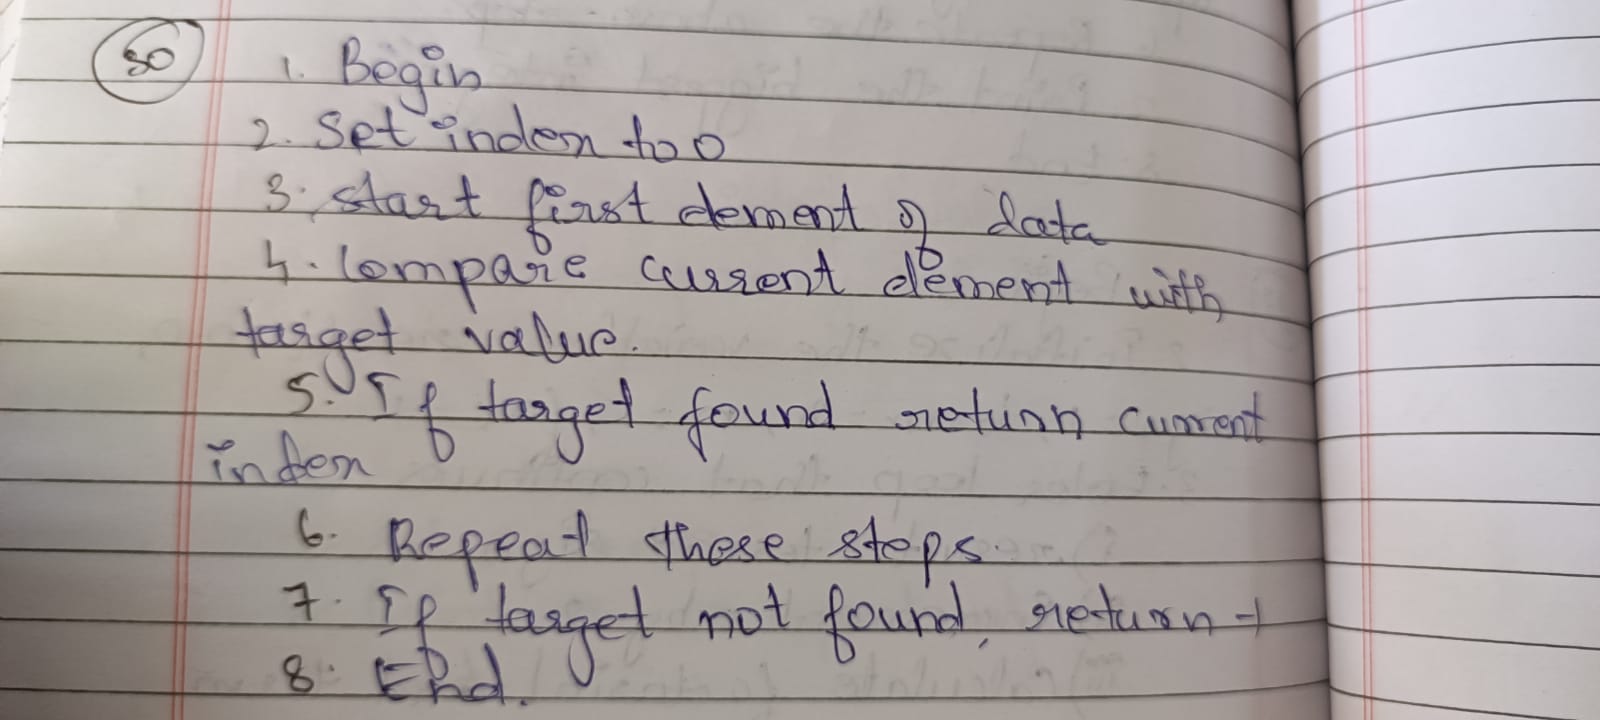 30
1. Begin
2. Set index to 0
3. start first element of data
4. Compare current element with
target value.
5. If target found return current
index
6. Repeat these steps.
7. If target not found, return -1
8. End.